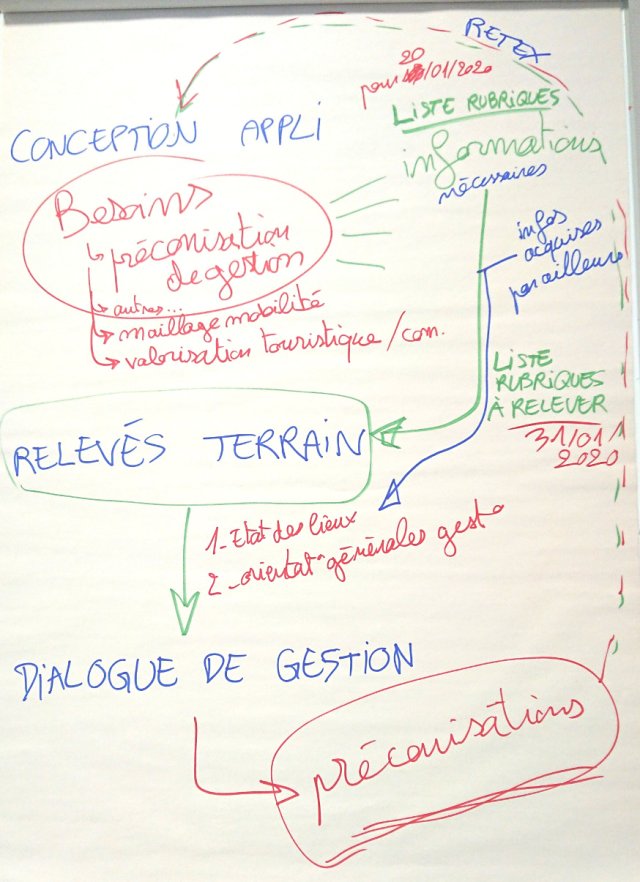 RETEX
20
pour /01/2020
LISTE RUBRIQUES
informations
nécessaires
CONCEPTION APPLI
Besoins
préconisation
de gestion
autres...
maillage mobilité
valorisation touristique/com.
infos
acquises
par ailleurs
LISTE
RUBRIQUES
À RELEVER
31/01/
2020
RELEVÉS TERRAIN
1_Etat des lieux
2_orientat° générales gest°
DIALOGUE DE GESTION
préconisations